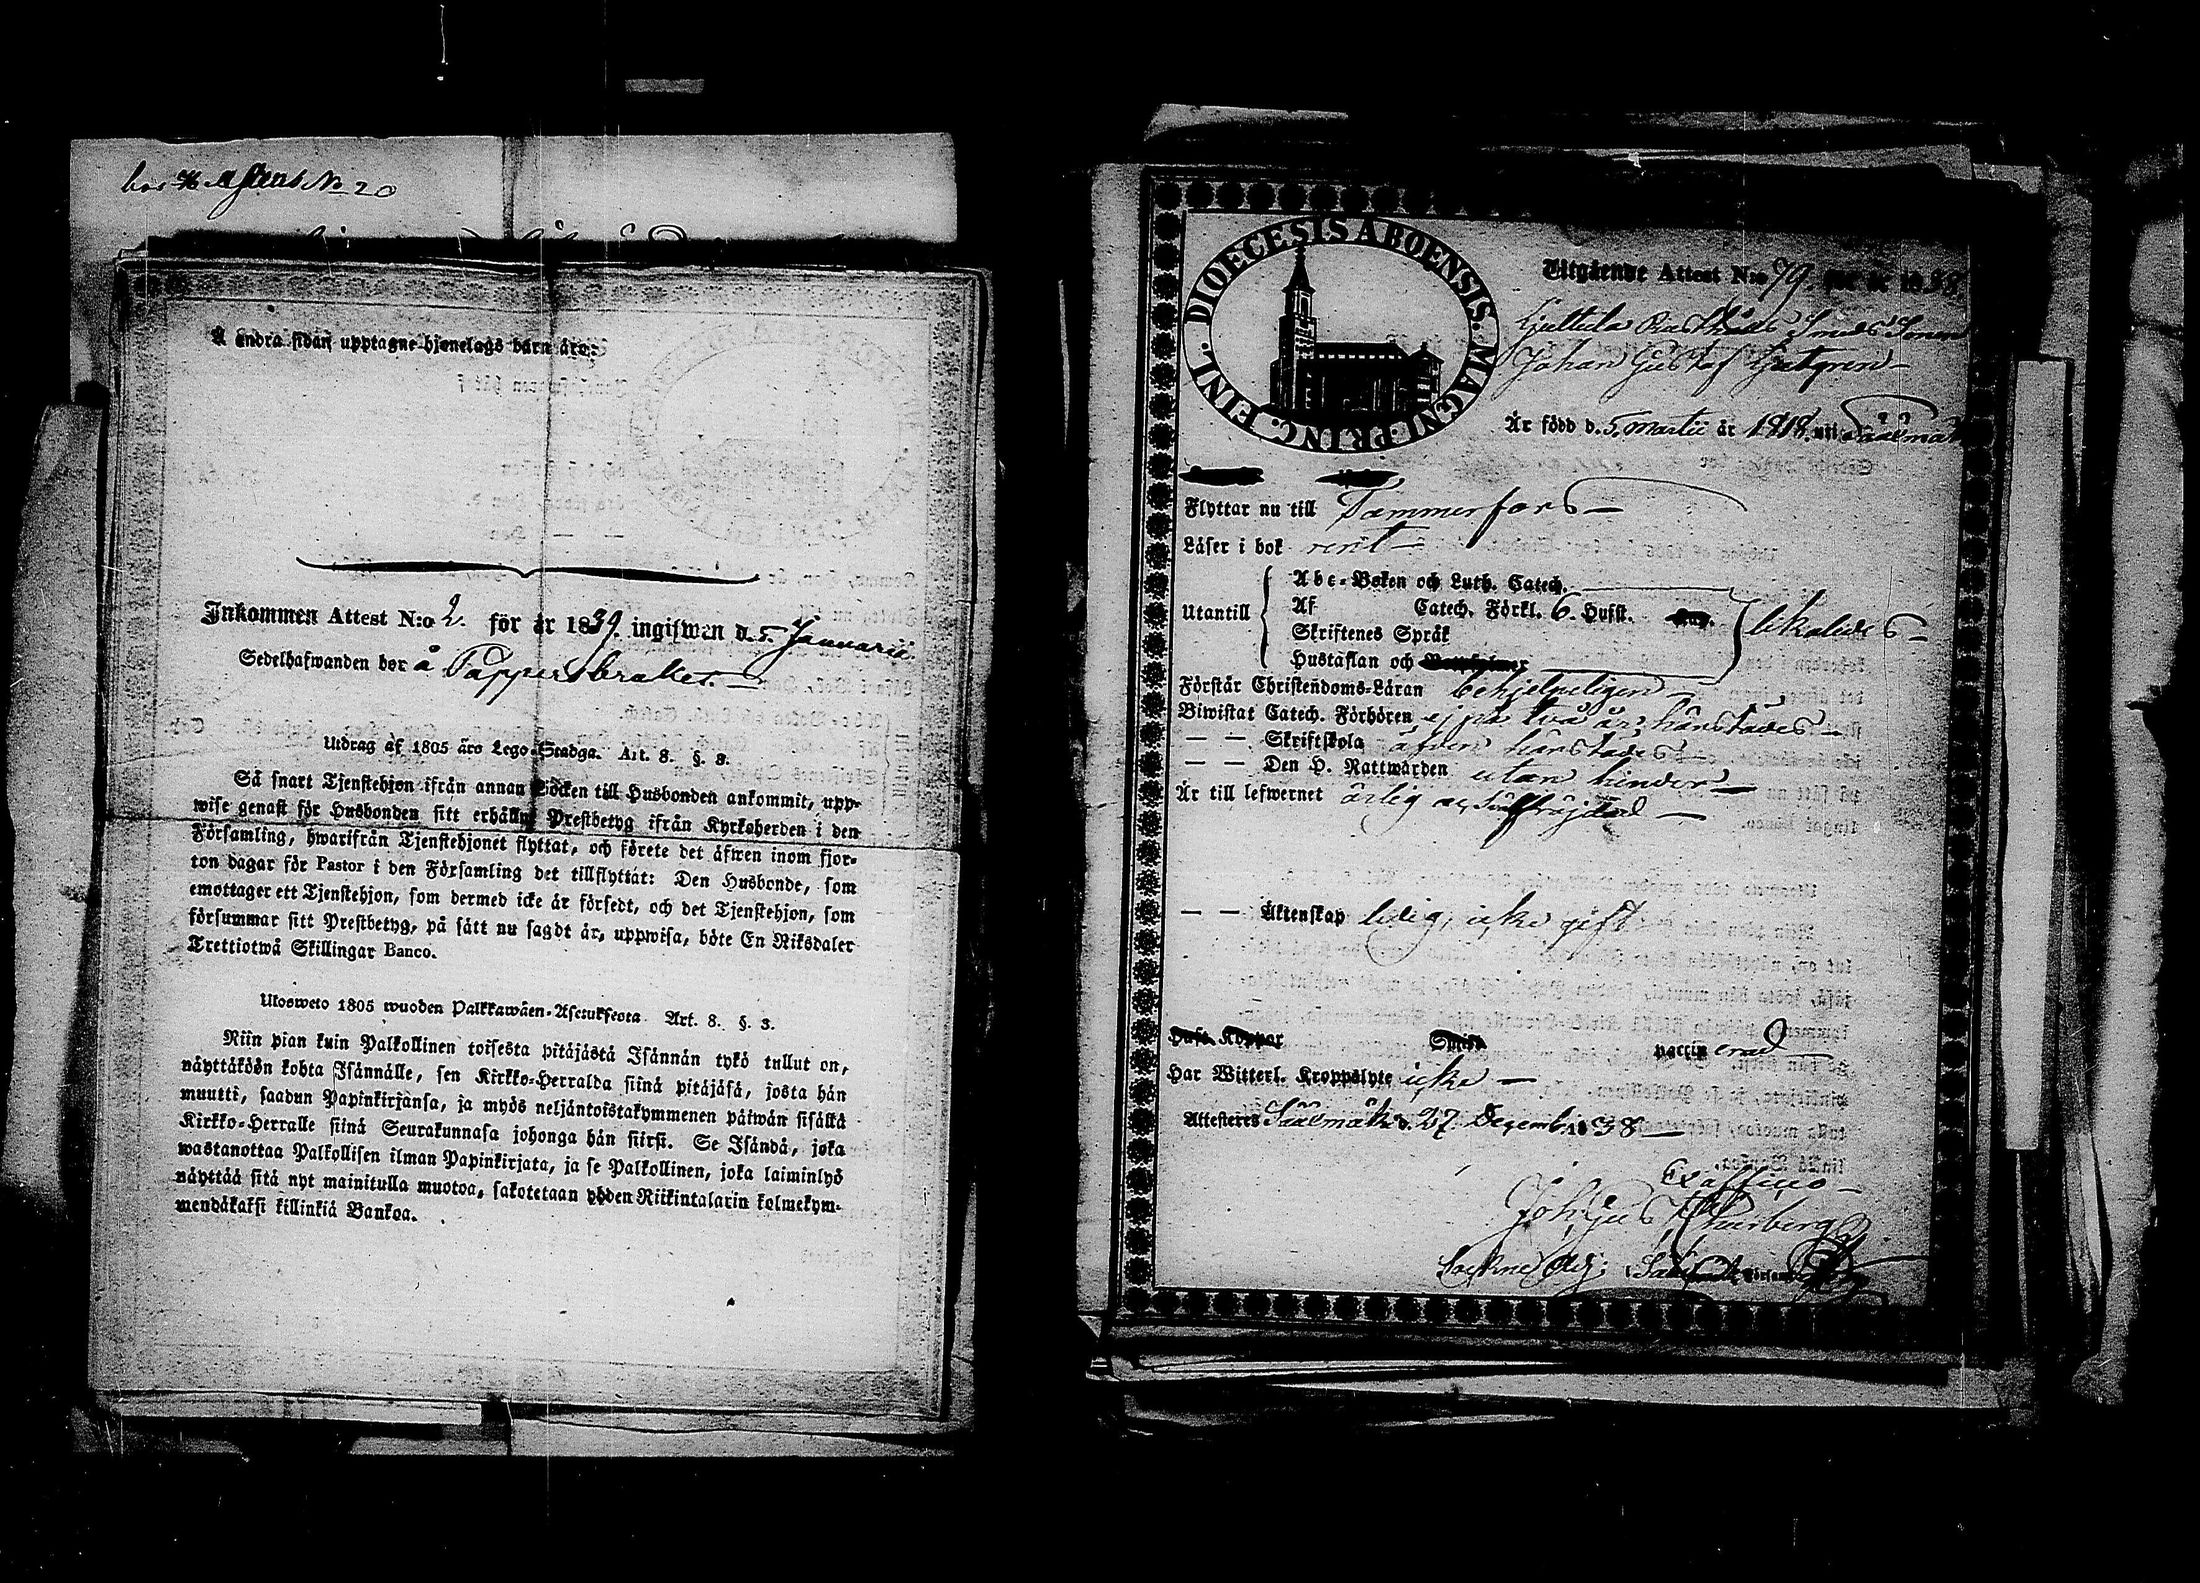 No 20
Å andra sidan upptagne hjonelags barn äro:
Inkommen Attest N:o 2. för år 1839. ingifwen d. 5. Januarii.
Sedelhafwanden bor å Pappersbruket.
Utdrag af 1805 års Lego-Stadga. Art. 8. §. 3.
Så snart Tjenstehjon ifrån annan Socken till Husbonden ankommit, upp-
wise genast för Husbonden sitt erhållne Prestbetyg ifrån Kyrkoherden i den
Församling, hwarifrån Tjenstehjonet flyttat, och förete det äfwen inom fjor-
ton dagar för Pastor i den Församling det tillflyttat: Den Husbonde, som
emottager ett Tjenstehjon, som dermed icke är försedt, och det Tjenstehjon, som
försummar sitt Prestbetyg, på sätt nu sagdt är, uppwisa, böte En Riksdaler
Trettiotwå Skillingar Banco.
Ulosweto 1805 wuoden Palkkawäen-Asetuksesta Art. 8. §. 3.
Niin pian kuin Palkollinen toisesta pitäjästä Isännän tykö tullut on,
näyttäköön kohta Isännälle, sen Kirkko-Herralda siinä pitäjäsä, josta hän
muutti, saadun Papinkirjansa, ja myös neljäntoistakymmenen päiwän sisällä
Kirkko-Herralle siinä Seurakunnasa johonga hän siirsi. Se Isändä, joka
wastanottaa Palkollisen ilman Papinkirjata, ja se Palkollinen, joka laiminlyö
näyttää sitä nyt mainitulla muotoa, sakotetaan yhden Riikintalarin kolmekym-
mendäkaksi killinkiä Bankoa.
DIOECESIS ABOENSIS. MAGNI. PRINC. FINL.
Utgående Attest N:o 79. för år 1838.
Johan Gustaf
Är född d. 5. Martii år 1818. uti Sääxmäki
Flyttar nu till Tammerfors
Läser i bok rent
Utantill
Abc-Boken och Luth. Catech.
Af Catech. Förkl. 6. Hufst.
Skriftenes Språk
Hustaflan och
likaledes
Förstår Christendoms-Läran behjelpeligen
Biwistat Catech. Förhören ej på två år härstädes
— — Skriftskola äfven härstädes
— — Den H. Nattwarden utan hinder
Är till lefwernet ärlig
— — Äktenskap ledig, icke gift
vaccinerad
Har Witterl. Kroppslyte icke
Attesteres Sääxmäki d. 27 Decemb. 1838
Joh. Gust. Thurberg